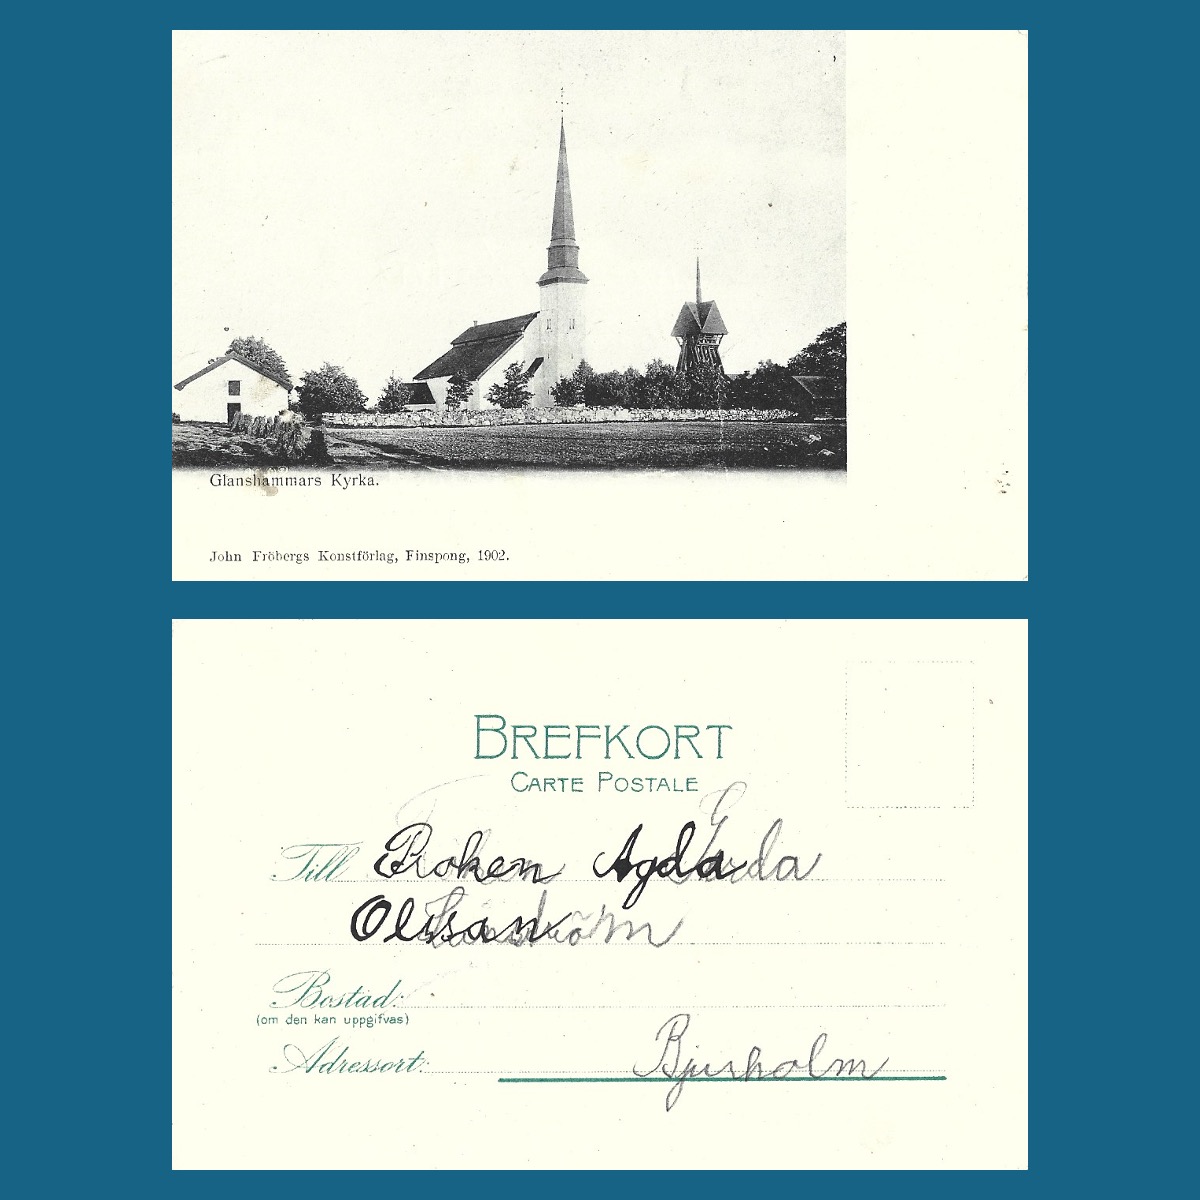 Glanshammars Kyrka.
John Fröbergs Konstförlag, Finspong, 1902.
BREFKORT
CARTE POSTALE
Till Froken Agda
Olssan
Bostad:
(om den kan uppgifvas)
Adressort: Bjurholm